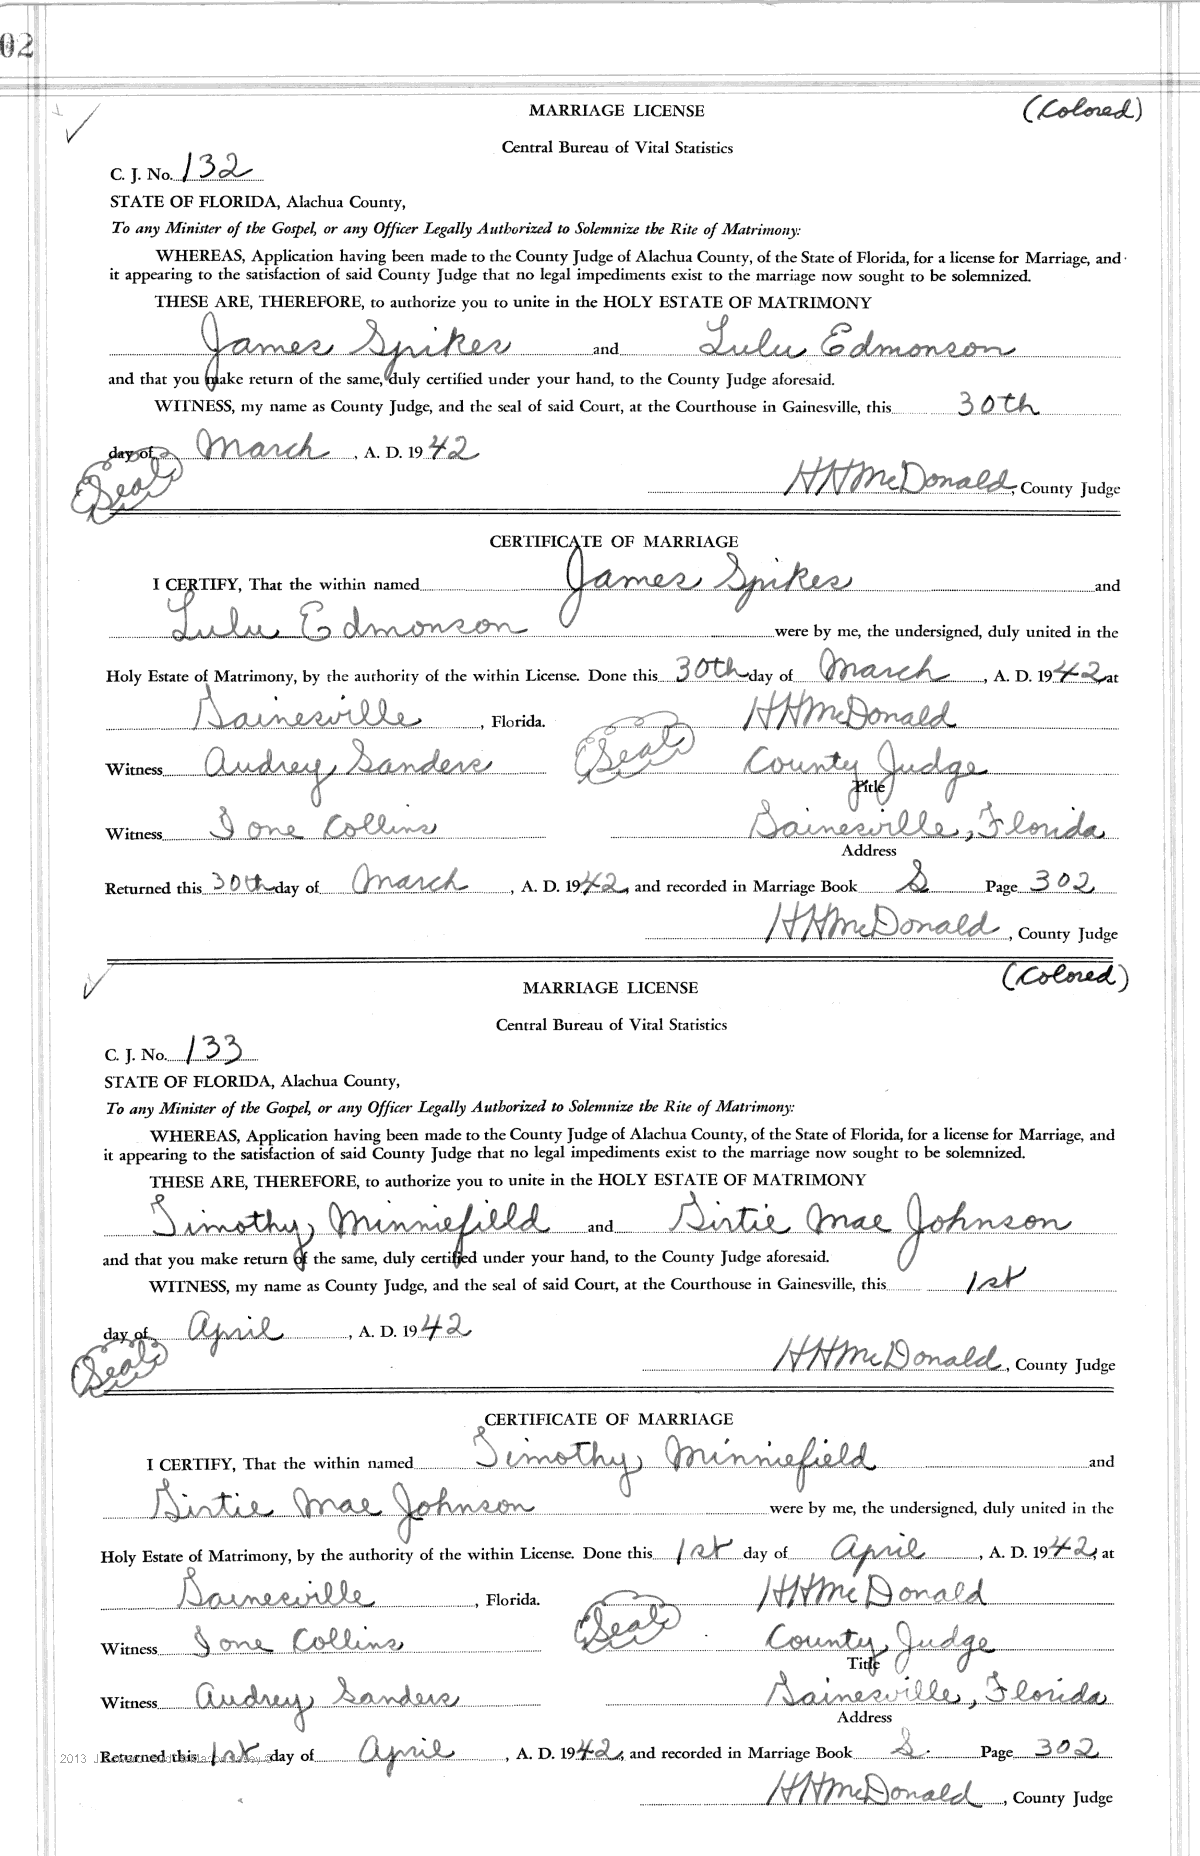 02
MARRIAGE LICENSE (Colored)
Central Bureau of Vital Statistics
C. J. No. 132
STATE OF FLORIDA, Alachua County,
To any Minister of the Gospel, or any Officer Legally Authorized to Solemnize the Rite of Matrimony:
WHEREAS, Application having been made to the County Judge of Alachua County, of the State of Florida, for a license for Marriage, and
it appearing to the satisfaction of said County Judge that no legal impediments exist to the marriage now sought to be solemnized.
THESE ARE, THEREFORE, to authorize you to unite in the HOLY ESTATE OF MATRIMONY
James Spikes and Lulu Edmonson
and that you make return of the same, duly certified under your hand, to the County Judge aforesaid.
WITNESS, my name as County Judge, and the seal of said Court, at the Courthouse in Gainesville, this 30th
day of March, A. D. 1942
(Seal) HHMcDonald, County Judge
CERTIFICATE OF MARRIAGE
I CERTIFY, That the within named James Spikes and
Lulu Edmonson were by me, the undersigned, duly united in the
Holy Estate of Matrimony, by the authority of the within License. Done this 30th day of March, A. D. 1942, at
Gainesville, Florida. HHMcDonald
Witness Audrey Sanders (Seal) County Judge
Title
Witness Ione Collins Gainesville, Florida
Address
Returned this 30th day of March, A. D. 1942, and recorded in Marriage Book S Page 302
HHMcDonald, County Judge
MARRIAGE LICENSE (Colored)
Central Bureau of Vital Statistics
C. J. No. 133
STATE OF FLORIDA, Alachua County,
To any Minister of the Gospel, or any Officer Legally Authorized to Solemnize the Rite of Matrimony:
WHEREAS, Application having been made to the County Judge of Alachua County, of the State of Florida, for a license for Marriage, and
it appearing to the satisfaction of said County Judge that no legal impediments exist to the marriage now sought to be solemnized.
THESE ARE, THEREFORE, to authorize you to unite in the HOLY ESTATE OF MATRIMONY
Timothy Minniefield and Girtie Mae Johnson
and that you make return of the same, duly certified under your hand, to the County Judge aforesaid.
WITNESS, my name as County Judge, and the seal of said Court, at the Courthouse in Gainesville, this 1st
day of April, A. D. 1942
(Seal) HHMcDonald, County Judge
CERTIFICATE OF MARRIAGE
I CERTIFY, That the within named Timothy Minniefield and
Girtie Mae Johnson were by me, the undersigned, duly united in the
Holy Estate of Matrimony, by the authority of the within License. Done this 1st day of April, A. D. 1942, at
Gainesville, Florida. HHMcDonald
Witness Ione Collins (Seal) County Judge
Title
Witness Audrey Sanders Gainesville, Florida
Address
2013
Returned this 1st day of April, A. D. 1942, and recorded in Marriage Book S. Page 302
HHMcDonald, County Judge